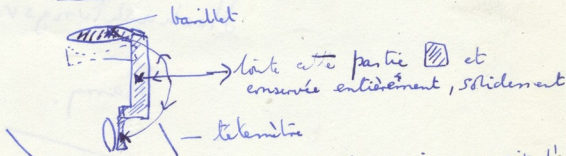 barillet.
toute cette partie et
conservée entièrement, solidement